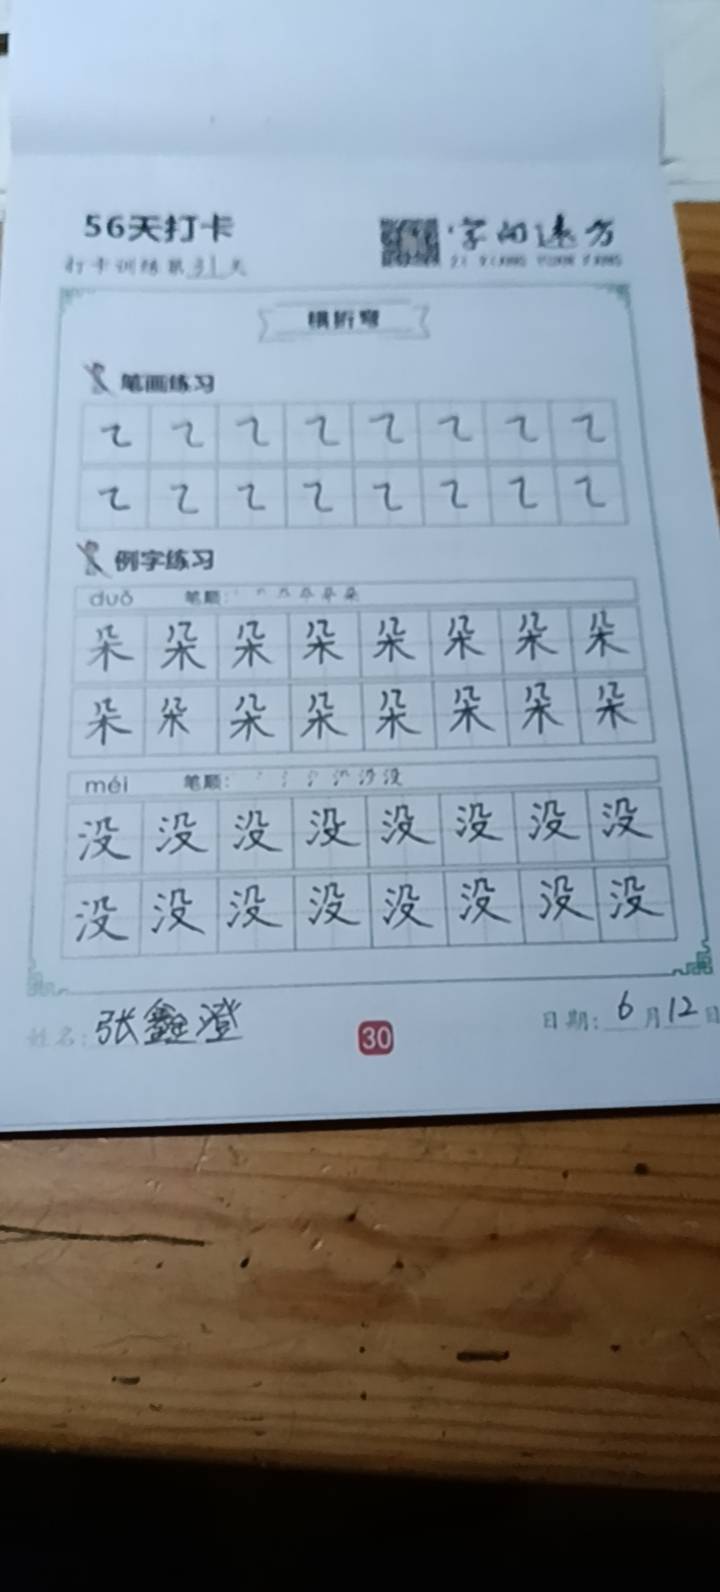 56天打卡
字向速方
打卡训练第31天
横折弯
笔画练习
㇍ ㇍ ㇍ ㇍ ㇍ ㇍ ㇍ ㇍
㇍ ㇍ ㇍ ㇍ ㇍ ㇍ ㇍ ㇍
例字练习
duǒ 笔顺:
朵 朵 朵 朵 朵 朵 朵 朵
朵 朵 朵 朵 朵 朵 朵 朵
méi 笔顺:
没 没 没 没 没 没 没 没
没 没 没 没 没 没 没 没
姓名: 张鑫澄
30
日期: 6月12日